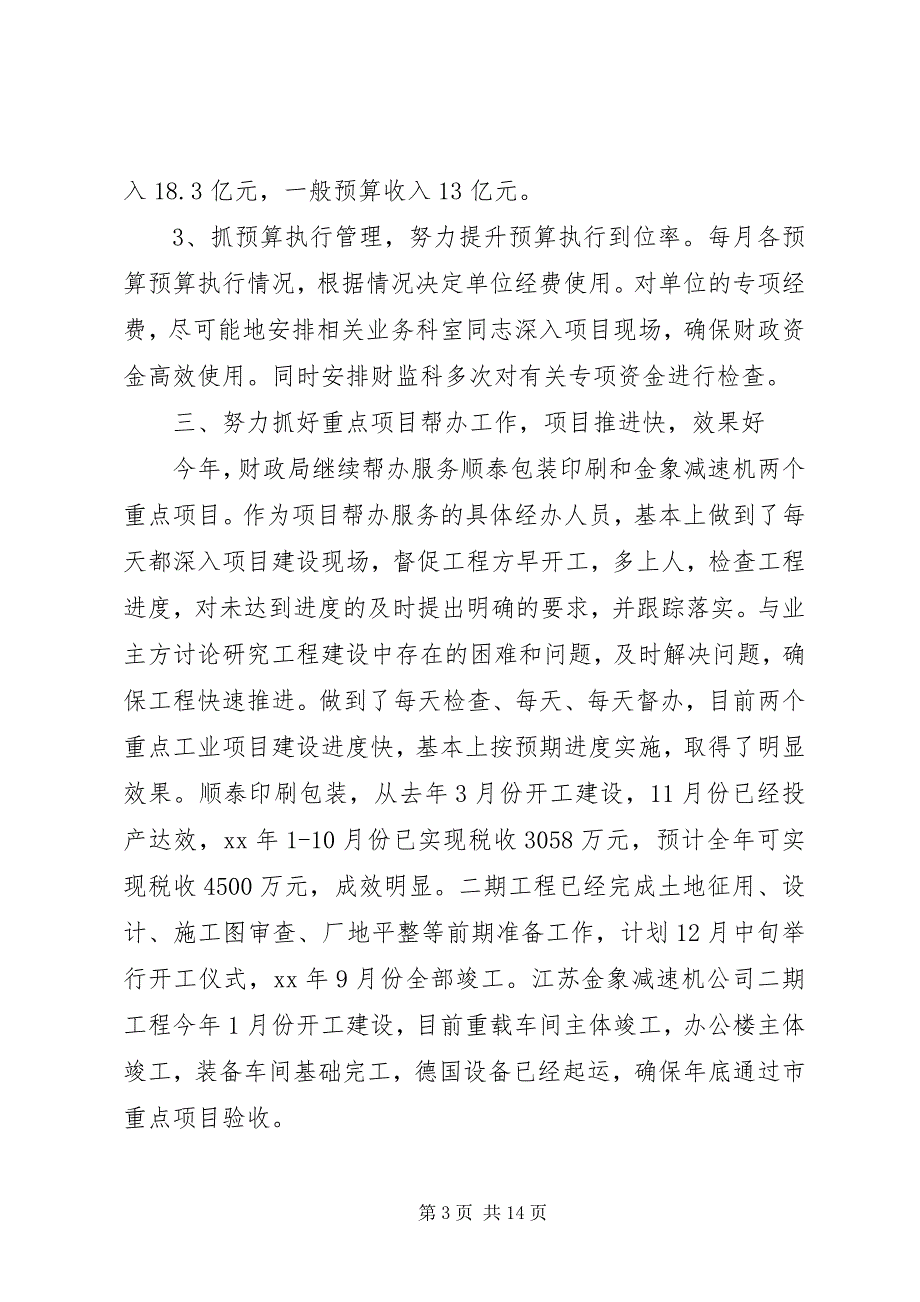 入 18.3 亿元，一般预算收入 13 亿元。
3、抓预算执行管理，努力提升预算执行到位率。每月各预
算预算执行情况，根据情况决定单位经费使用。对单位的专项经
费，尽可能地安排相关业务科室同志深入项目现场，确保财政资
金高效使用。同时安排财监科多次对有关专项资金进行检查。
三、努力抓好重点项目帮办工作，项目推进快，效果好
今年，财政局继续帮办服务顺泰包装印刷和金象减速机两个
重点项目。作为项目帮办服务的具体经办人员，基本上做到了每
天都深入项目建设现场，督促工程方早开工，多上人，检查工程
进度，对未达到进度的及时提出明确的要求，并跟踪落实。与业
主方讨论研究工程建设中存在的困难和问题，及时解决问题，确
保工程快速推进。做到了每天检查、每天、每天督办，目前两个
重点工业项目建设进度快，基本上按预期进度实施，取得了明显
效果。顺泰印刷包装，从去年 3 月份开工建设，11 月份已经投
产达效，xx 年 1-10 月份已实现税收 3058 万元，预计全年可实
现税收 4500 万元，成效明显。二期工程已经完成土地征用、设
计、施工图审查、厂地平整等前期准备工作，计划 12 月中旬举
行开工仪式，xx 年 9 月份全部竣工。江苏金象减速机公司二期
工程今年 1 月份开工建设，目前重载车间主体竣工，办公楼主体
竣工，装备车间基础完工，德国设备已经起运，确保年底通过市
重点项目验收。
第 3 页 共 14 页